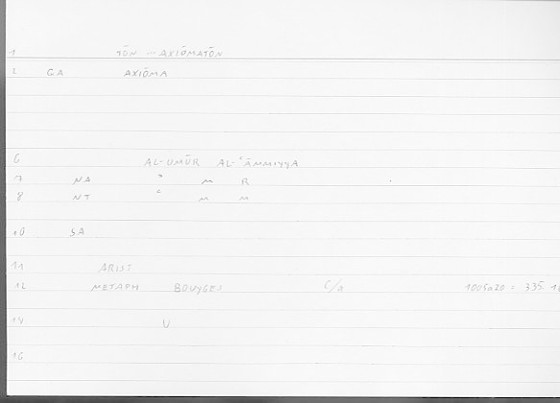 1 TŌN — AXIŌMATŌN
2 GA AXIŌMA
6 AL-UMŪR AL-ʿĀMMIYYA
7 NA ʾ M R
8 NT ʿ M M
10 ŞA
11 ARIST
12 METAPH BOUYGES C/a 1005a20 = 335.
14 U
16